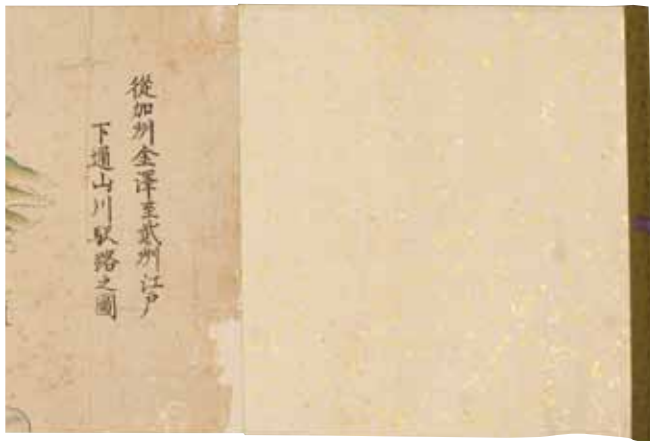 從加州金澤至武州江戸
下通山川駅路之圖